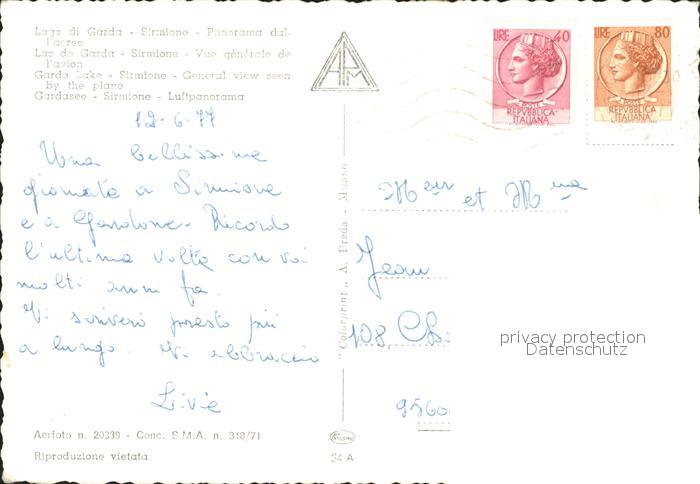 Lago di Garda - Sirmione - Panorama dal-
l'aereo
Lac de Garda - Sirmione - Vue générale de
l'avion
Garda Lake - Sirmione - General view seen
by the plane
Gardasee - Sirmione - Luftpanorama
12-6-77
Una bellissima
giornata a Sirmione
e a Gardone. Ricordo
l'ultima volta con voi
molti anni fa.
Vi scriverò presto più
a lungo. Vi abbraccio
Livie
Aerfoto n. 20339 - Conc. S.M.A. n. 318/71
Riproduzione vietata
34 A
"Colorprint" A. Preda - Milano
APM
LIRE 40
POSTE
REPVBBLICA
ITALIANA
LIRE 80
POSTE
REPVBBLICA
ITALIANA
et
Jean
108, Ch
9560
privacy protection
Datenschutz